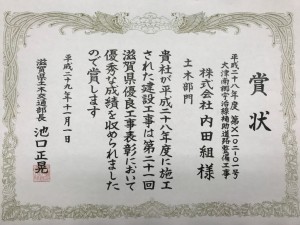 賞状
平成二十八年度 第X一〇二-〇一号
大津南郷宇治線補助道路整備工事
株式会社 内田組 様
土木部門
貴社が平成二十八年度に施工
された建設工事は第二十一回
滋賀県優良工事表彰において
優秀な成績を収められました
ので賞します
平成二十九年十一月一日
滋賀県土木交通部長 池口正晃